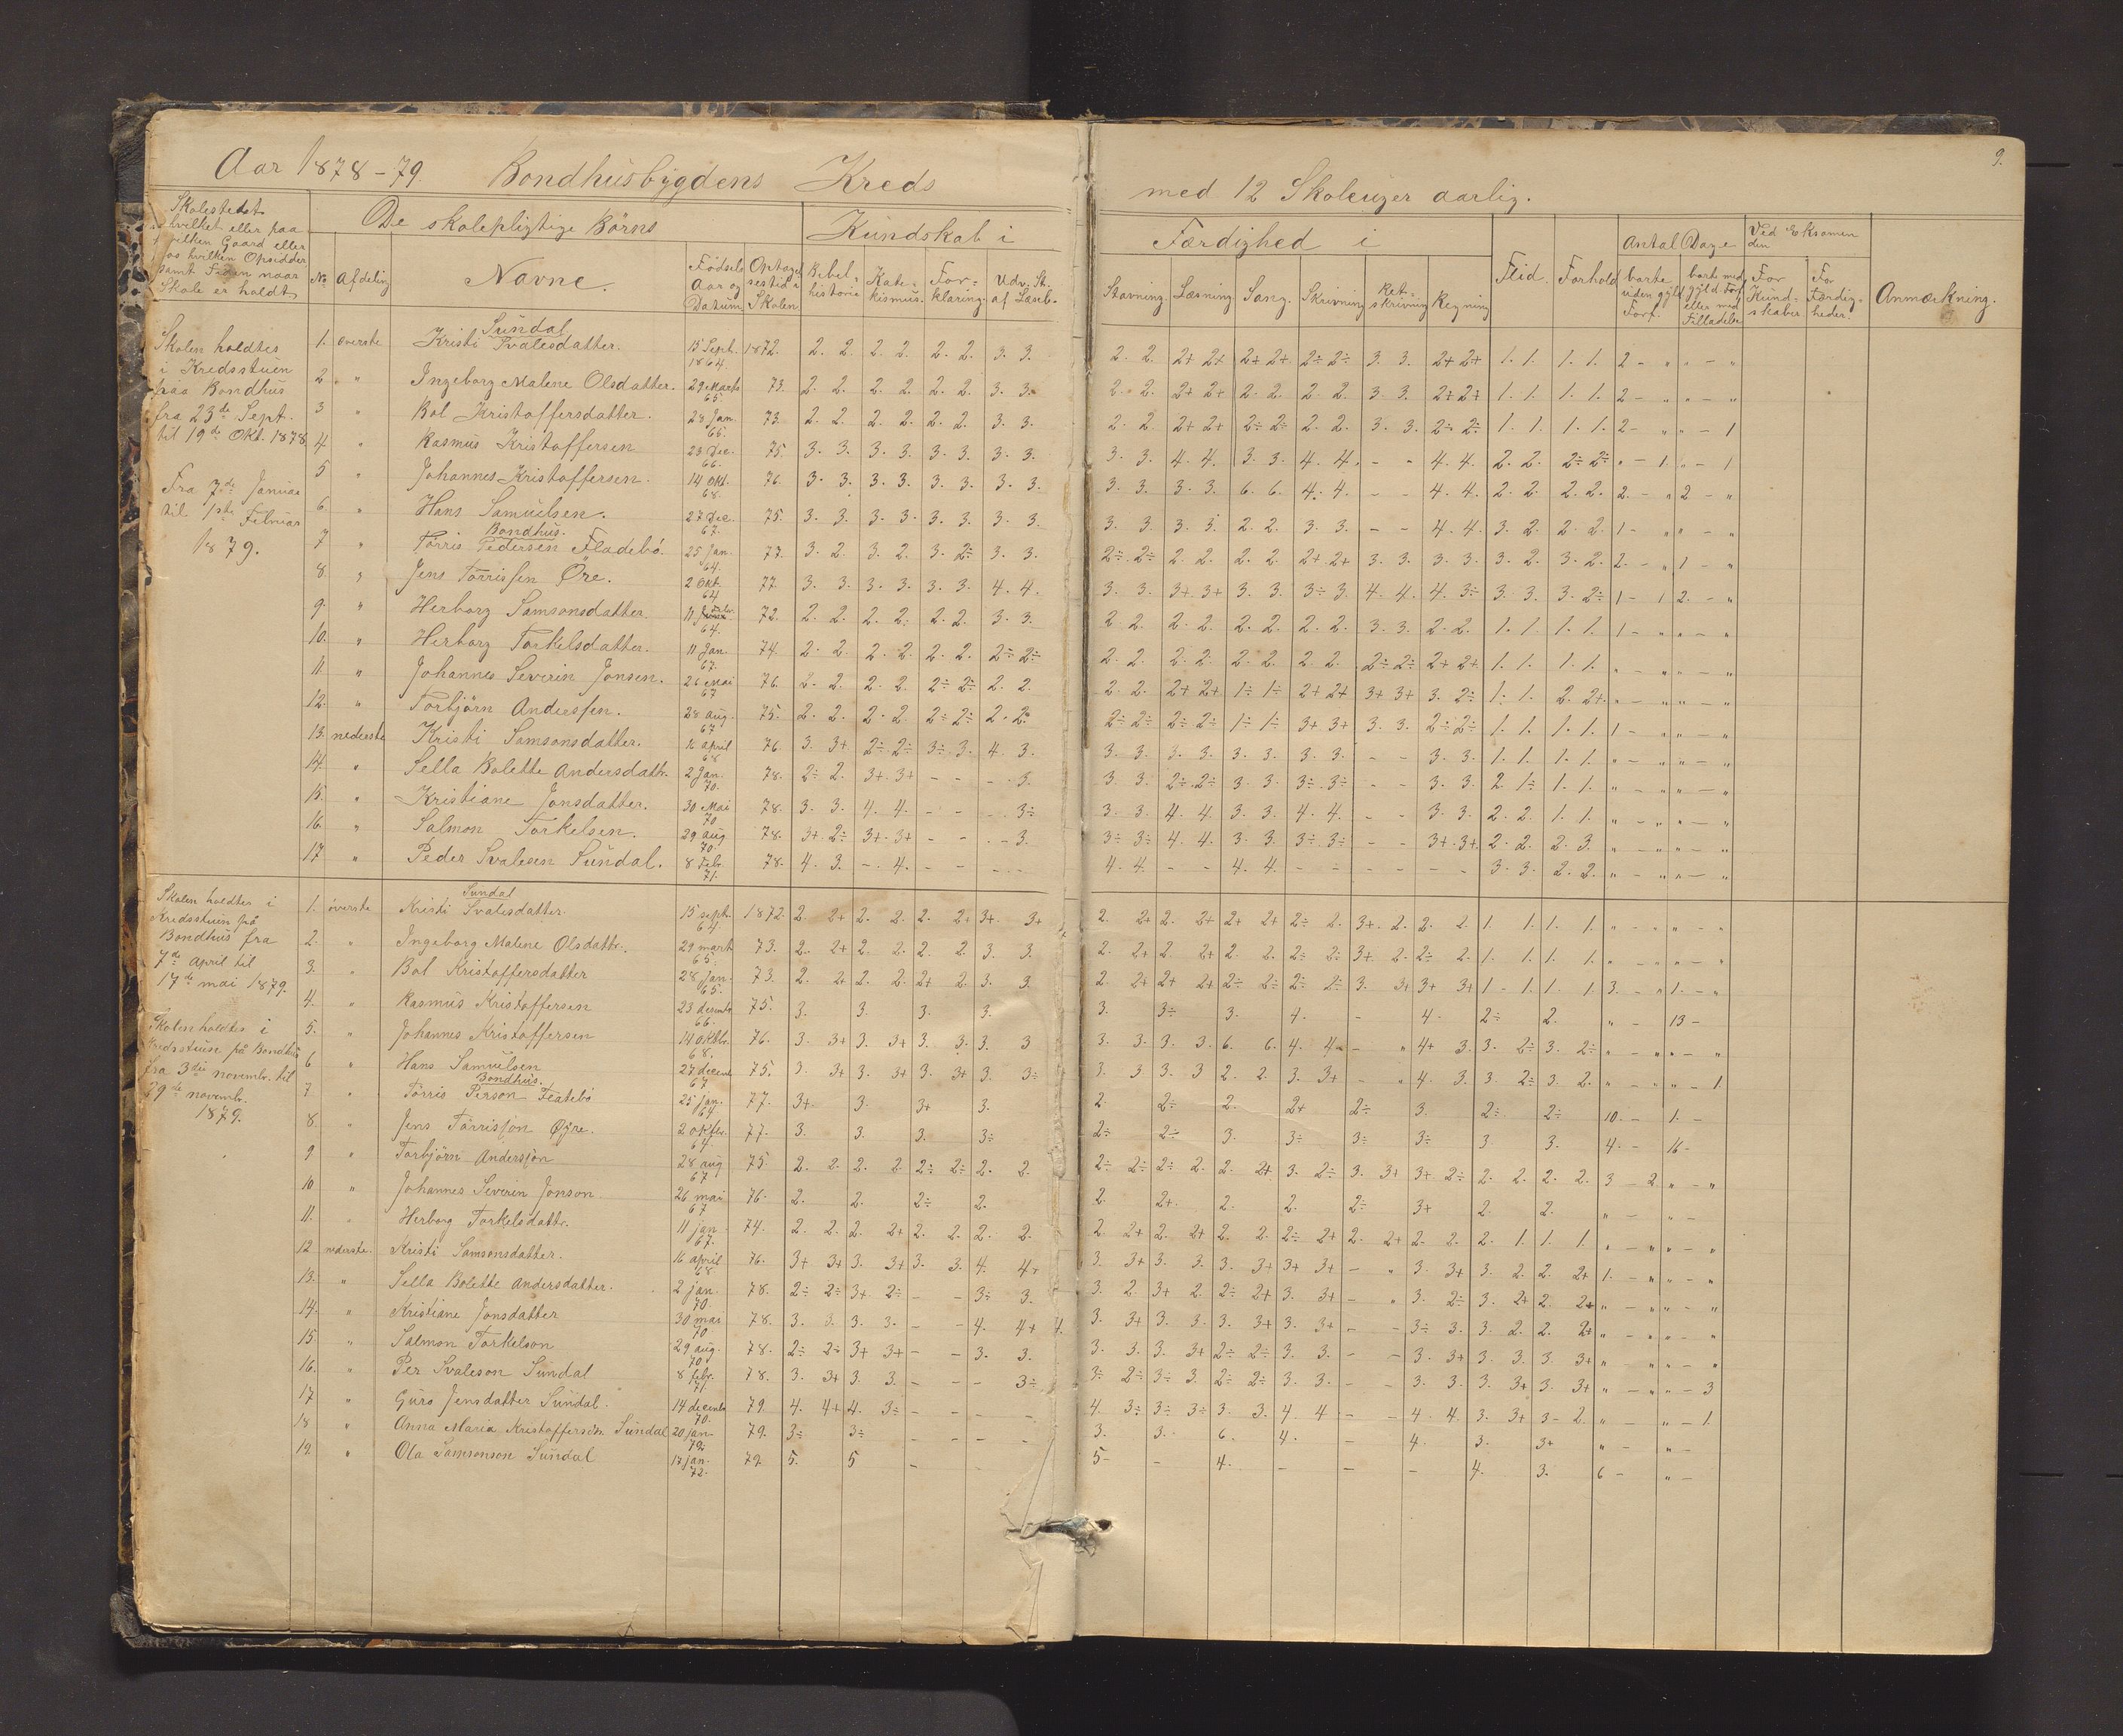 9.
Aar 1878-79. Bondhusbygdens Kreds med 12 Skoleuger aarlig.
Skolestedet
hvilket eller paa
hvilken Gaard eller
hos hvilken Opsidder
samt Tiden naar
Skole er holdt
De skolepligtige Børns
Kundskab i
Færdighed i
No Afdeling Navne. Fødsels Aar og Datum Optagelsestid i Skolen Bibelhistorie Katekismus. Forklaring. Udv. St. af Læseb.
Stavning. Læsning Sang. Skrivning Retskrivning Regning Flid. Forhold
Antal Dage
borte uden gyld Forf.
borte med gyld Forf eller med Tilladelse
Ved Eksamen den
For Kundskaber
For Færdigheder.
Anmærkning.
Skolen holdtes
i Kredsstuen
paa Bondhus
fra 23de Sept.
til 19de Okt. 1878
Fra 7de Januar
til 1ste Februar
1879.
Sundal
1. øverste Kristi Svalesdatter. 15 Sept. 1864. 1872. 2. 2. 2. 2. 2. 2. 3. 3. 2. 2. 2+ 2+ 2+ 2+ 2÷ 2÷ 3. 3. 2+ 2+ 1. 1. 1. 1. 2 - " " - "
2 " Ingeborg Malene Olsdatter. 29 Marts 65 73. 2. 2. 2. 2. 2. 2. 3. 3. 2. 2. 2+ 2+ 2. 2. 2. 2. 3. 3. 2+ 2+ 1. 1. 1. 1. 2 - " " - "
3 " Bol Kristoffersdatter. 28 Jan. 65. 73. 2. 2. 2. 2. 2. 2. 3. 3. 2. 2. 2+ 2+ 2÷ 2÷ 2. 2. 3. 3. 2÷ 2÷ 1. 1. 1. 1. 2 - " " - 1
4. " Rasmus Kristoffersen 23 Dec. 66. 75. 3. 3. 3. 3. 3. 3. 3. 3. 3. 3. 4. 4. 3. 3. 4. 4. - - 4. 4. 2. 2. 2÷ 2÷ " - 1. " - 1
5 " Johannes Kristoffersen. 14 Okt. 68. 76. 3. 3. 3. 3. 3. 3. 3. 3. 3. 3. 3. 3. 6. 6. 4. 4. - - 4. 4. 2. 2. 2. 2. 2. - " 2 - "
6. " Hans Samuelsen. 27 Dec. 67. 75. 3. 3. 3. 3. 3. 3. 3. 3. 3. 3. 3. 3. 2. 2. 3. 3. - - 4. 4. 3. 2. 2. 2. 1 - " " - "
Bondhus.
7 " Torris Pedersen Fladebø. 25 Jan. 64. 77. 3. 2. 3. 2. 3. 2÷ 3. 3. 2÷ 2÷ 2. 2. 2. 2. 2+ 2+ 3. 3. 3. 3. 3. 2. 3. 2. 2. - " 1 - "
8. " Jens Torrissen Øre. 2 Okt. 64 77. 3. 3. 3. 3. 3. 3. 4. 4. 3. 3. 3+ 3+ 3. 3. 3÷ 3. 4. 4. 4. 3÷ 3. 3. 3. 2÷ 1 - 1 2. - "
9. " Herborg Samsonsdatter. 11 Febr. 64. 72. 2. 2. 2. 2. 2. 2. 3. 3. 2 2. 2. 2. 2. 2. 2. 2. 3. 3. 2. 2. 1. 1. 1. 1. 1 - " " - "
10. " Herborg Torkelsdatter. 11 Jan. 67. 74. 2. 2. 2. 2. 2. 2. 2÷ 2÷ 2. 2. 2. 2. 2. 2. 2. 2. 2÷ 2÷ 2+ 2+ 1. 1. 1. 1. " - " " - "
11. " Johannes Severin Jonsen. 26 Mai 67 76. 2. 2. 2. 2. 2÷ 2÷ 2. 2. 2. 2. 2+ 2+ 1÷ 1÷ 2+ 2+ 3+ 3+ 3. 2÷ 1. 1. 2. 2+ " - " " - "
12. " Torbjörn Anderssen. 28 aug. 67 75. 2. 2. 2. 2. 2÷ 2÷ 2. 2. 2÷ 2÷ 2÷ 2÷ 1÷ 1÷ 3+ 3+ 3. 3. 2÷ 2÷ 1. 1. 1. 1. 1 - " " - "
13. nederste Kristi Samsonsdatter. 16 april 68 76. 3. 3+ 2÷ 2÷ 3÷ 3. 4. 3. 3. 3. 3. 3. 3. 3. 3. 3. - - 3. 3. 1. 1. 1. 1. " - " " - "
14. " Sella Bolette Andersdattr. 2 Jan. 70. 78. 2÷ 2. 3+ 3+ - - - 3. 3. 3. 2÷ 2÷ 3. 3. 3÷ 3÷ - - 3. 3. 2 1÷ 1. 1. " - " " - "
15. " Kristiane Jonsdatter. 30 Mai 70 78. 3. 3. 4. 4. - - - 3÷ 3. 3. 4. 4. 3. 3. 4. 4. - - 3. 3. 2. 2. 1. 1. " - " " - "
16. " Salmon Torkelsen. 29 aug. 70. 78. 3+ 2÷ 3+ 3+ - - - 3. 3÷ 3÷ 4. 4. 3. 3. 3÷ 3÷ - - 3+ 3+ 2. 2. 2. 3. " - " " - "
17 " Peder Svalesen Sundal. 8 Febr. 71. 78. 4. 3. - 4. - - - - 4. 4. - - 4. 4. - - - - - - 3. 3. 2. 2. " - " " - "
Skolen holdtes i
Kredsstuen på
Bondhus fra
7de april til
17de mai 1879.
Skolen holdtes i
Kredsstuen på Bondhus
fra 3die novembr. til
29de novembr.
1879.
Sundal
1. øverste Kristi Svalesdatter. 15 septr. 64 1872. 2 2+ 2. 2. 2. 2+ 3+ 3+ 2. 2+ 2. 2+ 2+ 2+ 2÷ 2. 3+ 2. 2. 2. 1. 1. 1. 1. " - " " - "
2. " Ingeborg Malene Olsdattr. 29 marts 65. 73. 2. 2+ 2. 2. 2. 2. 3. 3. 2. 2+ 2 2+ 2. 2. 2÷ 2÷ 3+ 2. 2÷ 2. 1. 1. 1. 1. " - " " - "
3. " Bol Kristoffersdatter 28 jan. 65. 73. 2. 2+ 2. 2. 2+ 2. 3. 3. 2. 2+ 2+ 2+ 2÷ 2÷ 2÷ 2÷ 3. 3+ 3+ 3+ 1 - 1. 1. 1. 3. - " 1. - "
4. " Rasmus Kristoffersen 23 decembr 66. 75. 3. 3. 3. 3. 3. 3÷ 3. 4. - 4. 2÷ 2. " - 13 -
5. " Johannes Kristoffersen 14 oktbr. 68. 76. 3. 3+ 3. 3+ 3. 3. 3. 3 3. 3. 3. 3. 6. 6. 4. 4. - " 4+ 3. 3. 2÷ 3. 2÷ " - " " - "
6 " Hans Samuelsen 27 decemb 67 75. 3. 3+ 3. 3+ 3. 3+ 3. 3÷ 3. 3. 3. 3 2. 2. 3. 3+ - " 4. 3. 3. 2÷ 3. 2. " - " " - 1
Bondhus.
7. " Torris Person Flatebø 25 jan. 64 77. 3+ 3. 3+ 3. 2. 2÷ 2. 2+ 2÷ 3. 2÷ 2÷ 10. - 1. -
8. " Jens Törrisson Øyre. 2 oktbr. 64. 77. 3. 3. 3. 3÷ 2÷ 2÷ 3. 3÷ 3÷ 3÷ 3. 3. 4. - 16 -
9 " Torbjörn Andersson 28 aug 67 75. 2. 2. 2. 2. 2÷ 2÷ 2. 2. 2÷ 2÷ 2÷ 2. 2. 2+ 3. 2÷ 3. 3+ 3+ 2÷ 2. 2. 2. 2. 3 - 2 " - "
10 " Johannes Severin Jonson. 26 mai 67 76. 2. 2. 2÷ 2. 2. 2+ 2. 2. 2÷ 3+ 2. 2. " - " -
11. " Herborg Torkelsdattr. 11 jan 67. 74. 2. 2. 2. 2+ 2. 2. 2. 2. 2. 2+ 2. 2+ 2. 2. 2÷ 2+ 2. 2+ 2. 2. 2. 1. 1. 1. " - " " - "
12. nederste. Kristi Samsonsdatter. 16 april 68. 76. 3+ 3+ 3. 3+ 3. 3. 4. 4+ 3. 3+ 3. 3. 3. 3+ 3+ 3+ - " 3. 3+ 3. 2. 2. 2+ 1. - " " - "
13. " Sella Bolette Andersdatter. 2 jan. 70. 78. 2÷ 2÷ 3+ 2÷ - - 3÷ 3. 3. 2. 3+ 2. 2÷ 2+ 3. 3+ - " 3. 2÷ 3. 2+ 2. 2+ " - " " - "
14. " Kristiane Jonsdatter 30 mai 70 78. 3. 3. 3. 3. - - 4. 4+ 3. 3+ 3. 3. 3. 3+ 3. 3+ - - 3÷ 3. 3. 2. 2. 2+ " - " " - "
15 " Salmon Torkelson 29 aug. 70 78. 2÷ 2÷ 3+ 3+ - - 3. 3. 3. 3. 3. 3+ 2÷ 2÷ 3. 3. - - 3. 3+ 3. 3. 3. 3+ " - " " - "
16. " Per Svaleson Sundal 8 febr. 71. 78. 3. 3+ 3. 3. - - - 3÷ 3÷ 2÷ 3÷ 3. 2÷ 2÷ 3. 3. - - 3. 3. 3. 3+ 3. 3+ " - " " - 3
17 " Guro Jensdatter Sundal. 14 decembr 70. 79. 4. 4+ 4. 3÷ - - - - 4. 3÷ 3÷ 3÷ 3. 3. 4. 4 - - 4. 4. 3. 3+ 3 - 2. " - " - 1.
18 " Anna Maria Kristoffersdtr. Sundal 20 jan 72. 79. 3÷ 3÷ - - 3. 3. 6. 4. - 4. 3. 3+ " - " -
19. " Ola Samsonson Sundal 17 jan. 72. 79. 5. 5 - - 5 - - 4. - - - 4. 3. 6 - " -